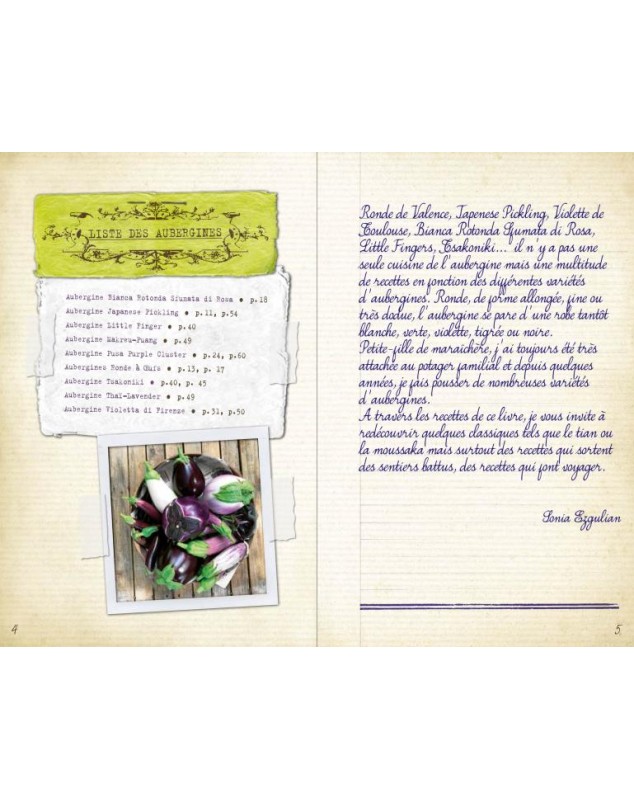 LISTE DES AUBERGINES
Aubergine Bianca Rotonda Sfumata di Rosa • p.18
Aubergine Japanese Pickling • p.11, p.54
Aubergine Little Finger • p.40
Aubergine Makreu-Puang • p.49
Aubergine Pusa Purple Cluster • p.24, p.60
Aubergines Ronde & Œufs • p.13, p.17
Aubergine Tsakoniki • p.40, p. 45
Aubergine Thaï-Lavender • p.49
Aubergine Violetta di Firenze • p.31, p.50
4
Ronde de Valence, Japenese Pickling, Violette de
Toulouse, Bianca Rotonda Sfumata di Rosa,
Little Fingers, Tsakoniki... il n'y a pas une
seule cuisine de l'aubergine mais une multitude
de recettes en fonction des différentes variétés
d'aubergines. Ronde, de forme allongée, fine ou
très dodue, l'aubergine se pare d'une robe tantôt
blanche, verte, violette, tigrée ou noire.
Petite-fille de maraîchère, j'ai toujours été très
attachée au potager familial et depuis quelques
années, je fais pousser de nombreuses variétés
d'aubergines.
A travers les recettes de ce livre, je vous invite à
redécouvrir quelques classiques tels que le tian ou
la moussaka mais surtout des recettes qui sortent
des sentiers battus, des recettes qui font voyager.
Sonia Ezgulian
5